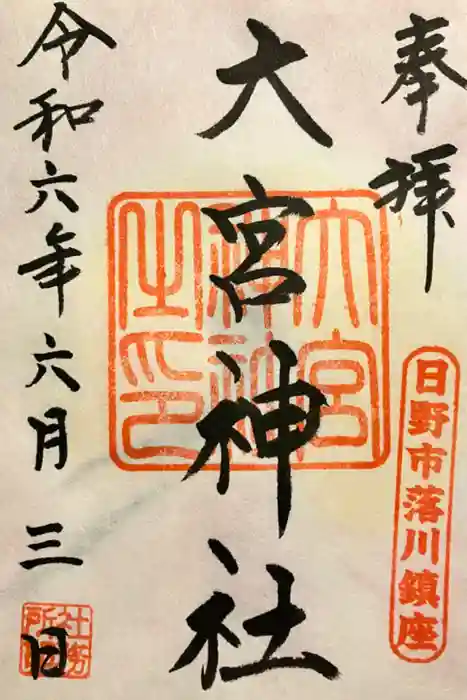 奉拝
日野市落川鎮座
大宮神社
大宮神社之印
令和六年六月三日
社務所印